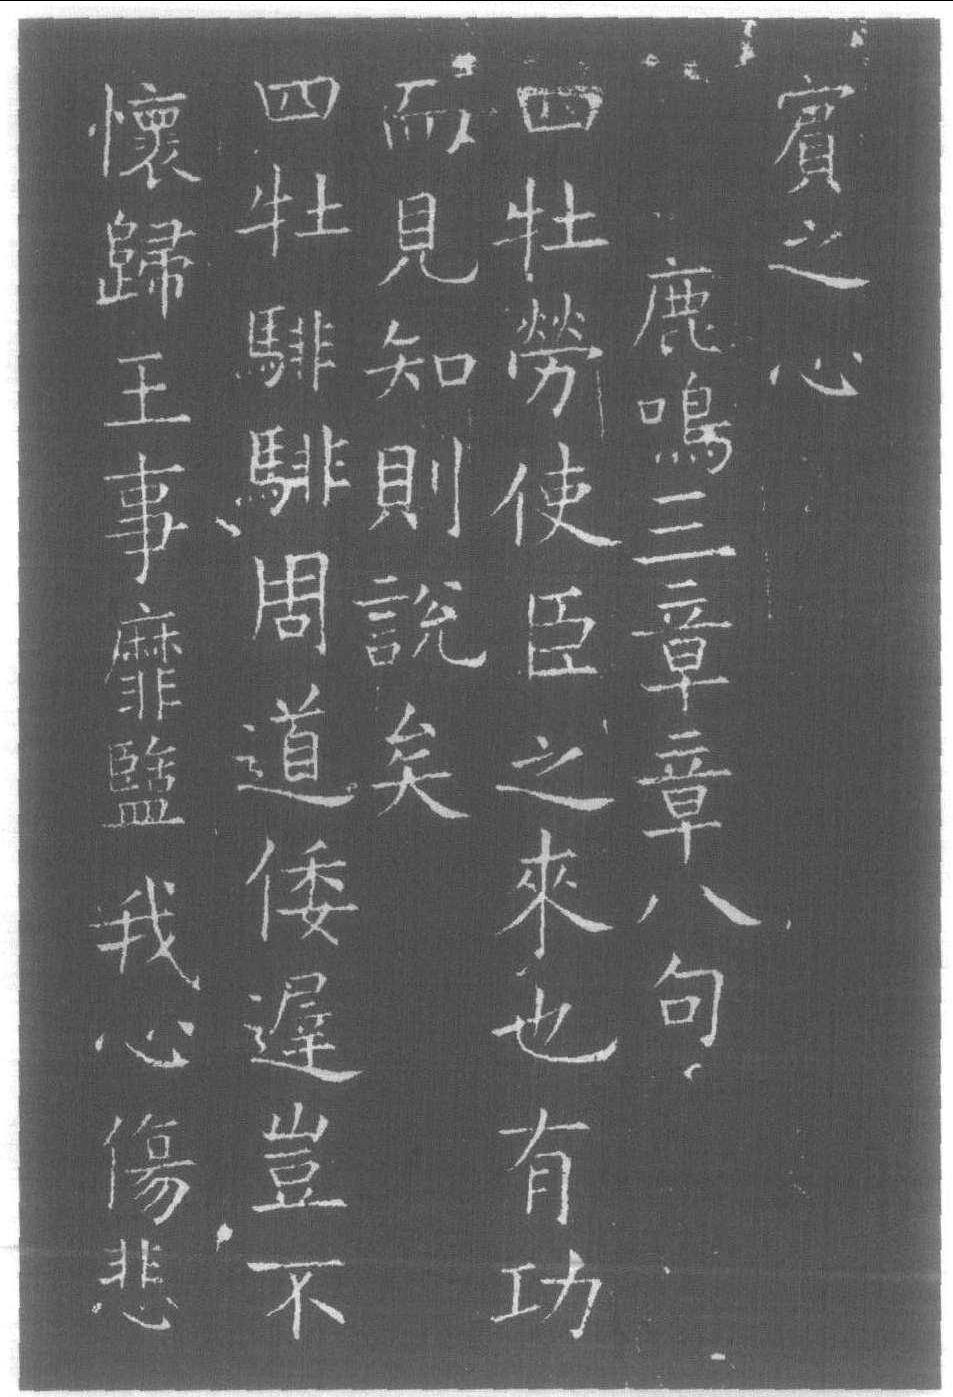 賓之心
鹿鳴三章章八句
四牡勞使臣之來也有功
而見知則說矣
四牡騑騑周道倭遲豈不
懷歸王事靡盬我心傷悲